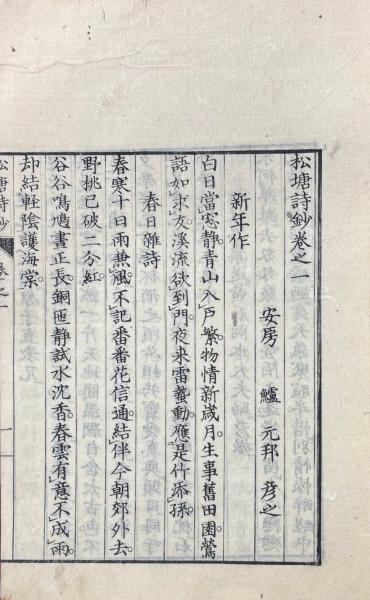 松塘詩鈔卷之一
安房　鱸　元邦　彦之
新年作
白日當窓靜。青山入戸繁。物情新歳月。生事舊田園。鶯
語如求友。溪流欲到門。夜來雷蟄動。應是竹添孫。
春日雜詩
春寒十日雨兼風。不記番番花信通。結伴今朝郊外去。
野桃已破二分紅。
谷谷鳴鳩晝正長。銅匜靜試水沈香。春雲有意不成雨。
却結輕陰護海棠。
松塘詩鈔　卷之一　一